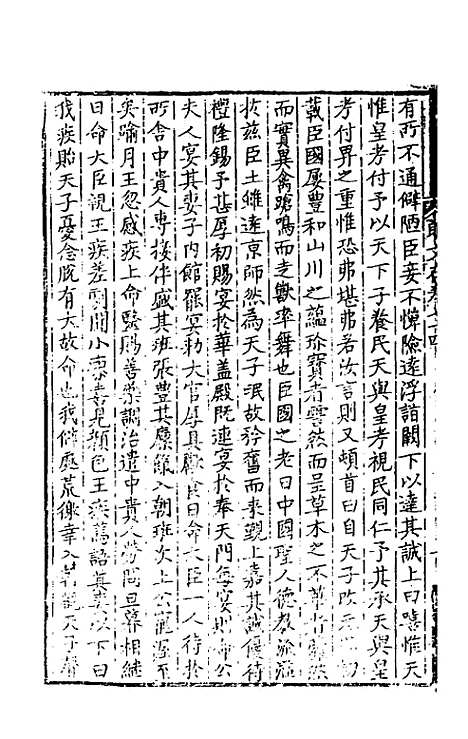 有所不通僻陋臣妾不憚險遠浮詣闕下以達其誠上曰嘻惟天
惟皇考付予以天下子養民天與皇考視民同仁予其承天與皇
考付畀之重惟恐弗堪弗若汝言則又頓首曰自天子改元之
載臣國屢豐和山川之蘊珍寶者雪然而呈草木之不華者
而實異禽蹌鳴而走獸率舞也臣國之老曰中國聖人德教
於茲臣土雖遠京師然為天子氓故矜奮而來覲上嘉其誠優待
禮隆錫予甚厚初賜宴於華蓋殿既連宴於奉天門每宴則命公
夫人宴其妻子內館罷宴勑大官厚具歡食日命大臣一人待於
所舍中貴人專接伴盛其班張豊其廩餼入朝班次上公寵至
矣踰月王忽感疾上命醫賜善藥調治遣中貴人勞問旦暮相繼
日命大臣視王疾差劇聞小
顏色王疾篤語其妻以下曰
我疾貽天子憂念脫有大故命也我僻處荒徼幸入
覩天子